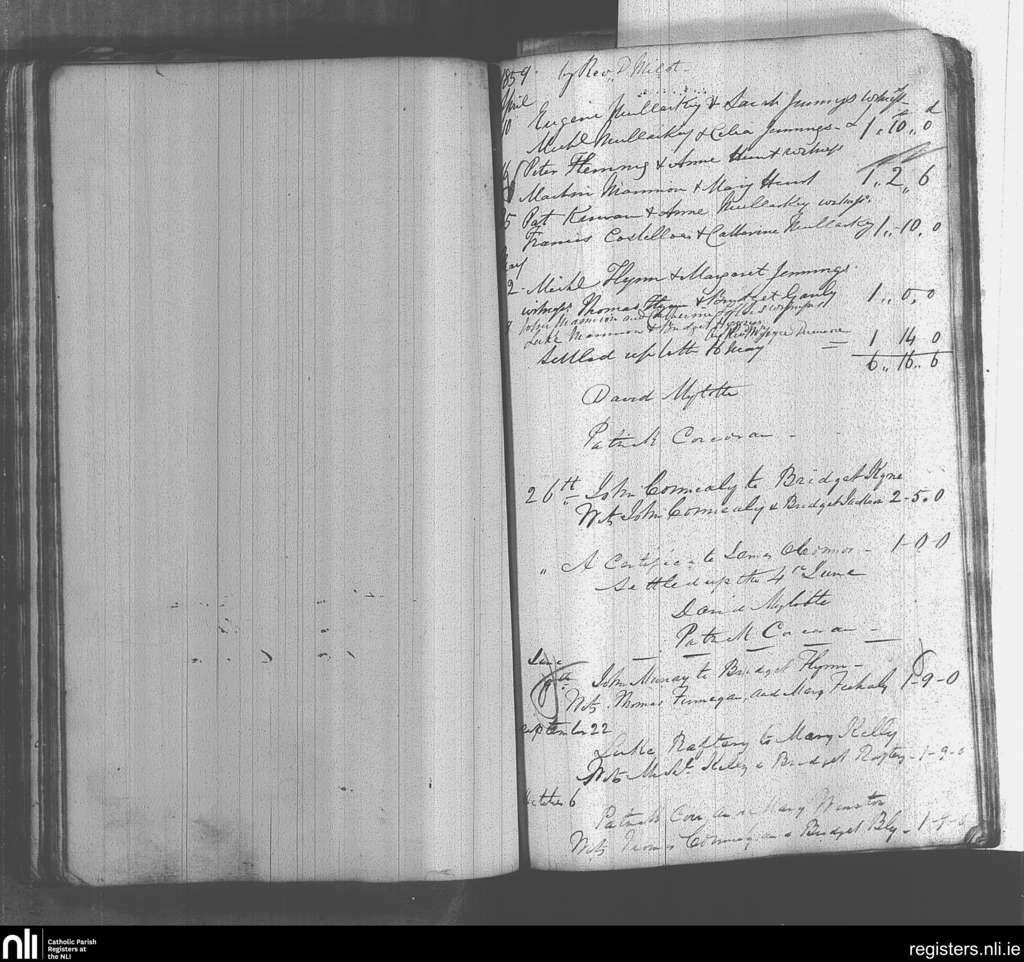 1859. by Rev. D Milot
April
10 Eugene Mullarkey & Sarah Jennings witness
Michl Mullarkey & Celia Jennings - £1,,10,,0
Peter Flemming & Anne Hunt witness
Martin Mannion & Mary Hunt 1,,2,,6
5 Pat Kirwan & Anne Mullarkey witness
Francis Costelloe & Catherine Mullarkey 1,,10,,0
May
2 - Michl Flynn & Margaret Jennings
witness Thomas Flynn & Bridget Ganly 1,,0,,0
John Mannion and Catherine witness
Luke Mannion & Bridget
Settled up to the 16 May = 1 14 0
6,,16,,6
David Mylotte
Patrick Corcoran -
26th John Connealy to Bridget Kyne
Wits John Connealy & Bridget 2-5,0
" A Certificate to James OConnor - 1-0-0
Settled up the 4th June
David Mylotte
Patrick Corcoran -
June
9th John Murray to Bridget Flynn -
Wits. Thomas Finnegan, and Mary 1-9-0
September 22
Luke Raftery to Mary Kelly
Wits Michl. Kelly & Bridget Raftery - 1-9-0
October 6
Patrick Mary
Wits Thomas & Bridget
nli
Catholic Parish
Registers at
the NLI
registers.nli.ie